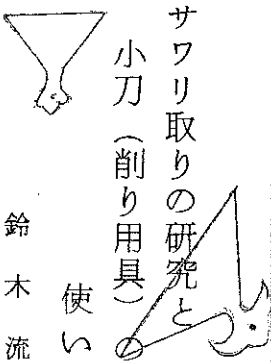 サワリ取りの研究と
小刀（削り用具）
使い
鈴木流